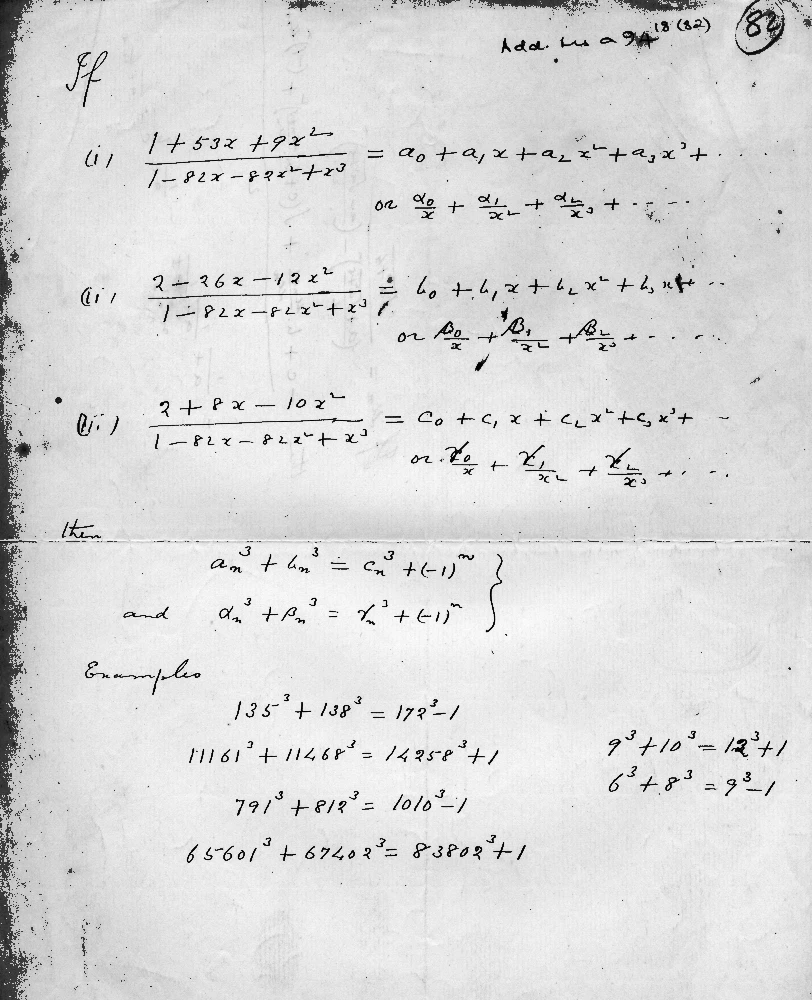 Add. Ms a 94 18 (82)
82
If
(i) (1 + 53x + 9x²)/(1 - 82x - 82x² + x³) = a₀ + a₁x + a₂x² + a₃x³ + ...
or α₀/x + α₁/x² + α₂/x³ + ....
(ii) (2 - 26x - 12x²)/(1 - 82x - 82x² + x³) = b₀ + b₁x + b₂x² + b₃x³ + ..
or β₀/x + β₁/x² + β₂/x³ + .....
(iii) (2 + 8x - 10x²)/(1 - 82x - 82x² + x³) = c₀ + c₁x + c₂x² + c₃x³ + -
or γ₀/x + γ₁/x² + γ₂/x³ + ...
then
aₙ³ + bₙ³ = cₙ³ + (-1)ⁿ }
and αₙ³ + βₙ³ = γₙ³ + (-1)ⁿ
Examples
135³ + 138³ = 172³ - 1
11161³ + 11468³ = 14258³ + 1
9³ + 10³ = 12³ + 1
791³ + 812³ = 1010³ - 1
6³ + 8³ = 9³ - 1
65601³ + 67402³ = 83802³ + 1